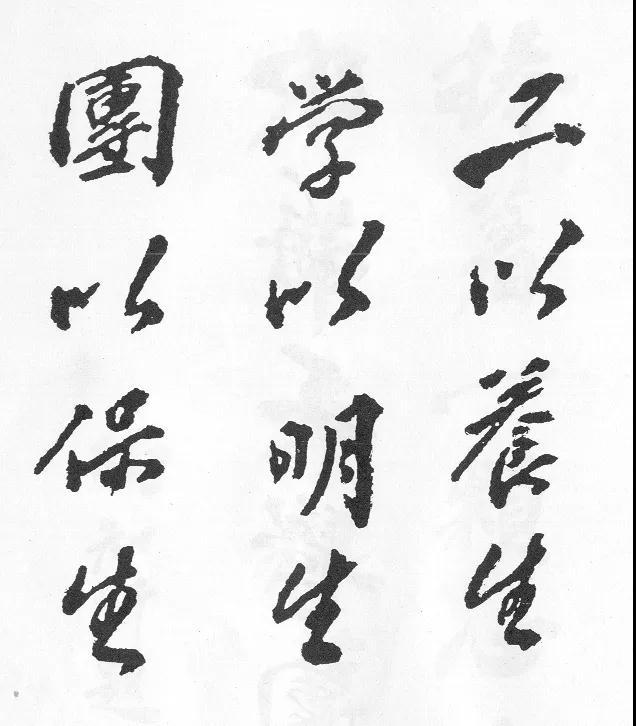 工以養生
学以明生
團以保生